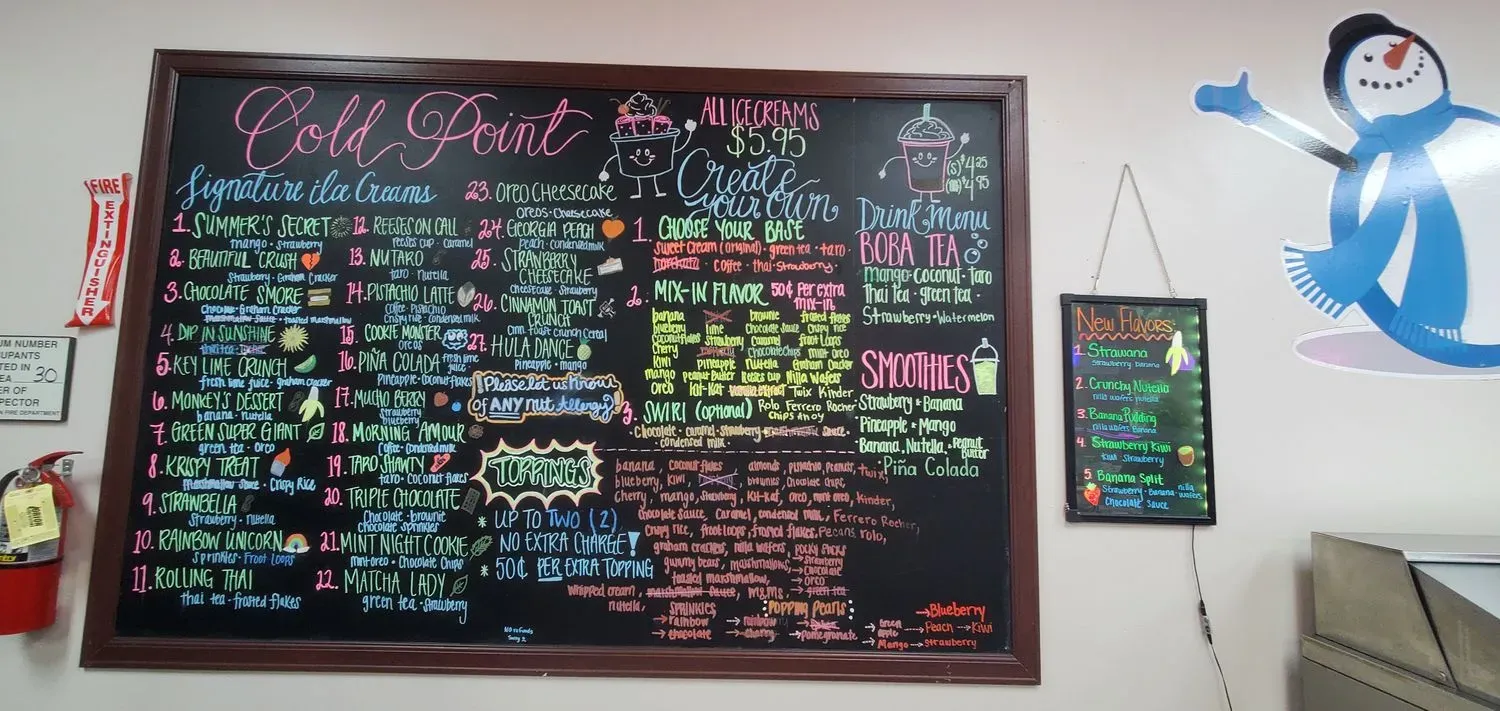 FIRE
EXTINGUISHER
UM NUMBER
UPANTS
TED IN
EA 30
ER OF
SPECTOR
N FIRE DEPARTMENT
Cold Point
Signature ice Creams
1. SUMMER'S SECRET
mango · strawberry
2. BEAUTIFUL CRUSH
Strawberry · Graham Cracker
3. CHOCOLATE SMORE
Chocolate · Graham Cracker
marshmallow sauce · toasted marshmallow
4. DIP IN SUNSHINE
thai tea
5. KEY LIME CRUNCH
fresh lime juice · graham cracker
6. MONKEY'S DESSERT
banana · nutella
7. GREEN SUPER GIANT
green tea · oreo
8. KRISPY TREAT
marshmallow sauce · Crispy Rice
9. STRANBELLA
Strawberry · nutella
10. RAINBOW UNICORN
sprinkles · Froot Loops
11. ROLLING THAI
thai tea · frosted flakes
12. REESE'S ON CALL
reeses cup · caramel
13. NUTARO
taro · nutella
14. PISTACHIO LATTE
coffee · Pistachio
crispy rice · condensed milk
15. COOKIE MONSTER
oreos
16. PIÑA COLADA fresh lime juice
Pineapple · Coconut flakes
17. MUCHO BERRY
Strawberry
blueberry
18. MORNING AMOUR
Coffee · Condensed milk
19. TARO SHAWTY
taro · Coconut flakes
20. TRIPLE CHOCOLATE
Chocolate · brownie
chocolate sprinkles
21. MINT NIGHT COOKIE
mint oreo · Chocolate Chips
22. MATCHA LADY
green tea · Strawberry
23. OREO CHEESECAKE
Oreos · Cheesecake
24. GEORGIA PEACH
peach · condensed milk
25. STRANBERRY
CHEESECAKE
cheesecake · Strawberry
26. CINNAMON TOAST
CRUNCH
Cinn. Toast Crunch Cereal
27. HULA DANCE
Pineapple · mango
!Please let us know
of ANY nut Allergy!
TOPPINGS
* UP TO TWO (2)
NO EXTRA CHARGE!
* 50¢ PER EXTRA TOPPING
NO refunds
ALL ICECREAMS
$5.95
Create
your own
1. CHOOSE YOUR BASE
Sweet Cream (original) · green tea · taro
· coffee · thai · Strawberry ·
2. MIX-IN FLAVOR 50¢ Per extra
mix-in
banana brownie frosted flakes
blueberry lime Chocolate Sauce Crispy rice
Coconut flakes Strawberry Caramel froot Loops
Cherry Chocolate Chips mint oreo
Kiwi pineapple Nutella Graham Cracker
mango peanut butter Reeses cup Nilla Wafers
Oreo Kit-Kat Twix Kinder
Rolo Ferrero Rocher
Chips Ahoy
3. SWIRL (optional)
Chocolate · caramel · Strawberry sauce ·
condensed milk ·
banana, Coconut flakes almonds, pistachio, peanuts, twix,
blueberry, Kiwi, brownies, chocolate chips,
Cherry, mango, Strawberry, Kit-Kat, oreo, mint oreo, kinder,
Chocolate Sauce, Caramel, condensed milk, Ferrero Rocher,
Crispy rice, froot loops, frosted flakes, Pecans, rolo,
graham crackers, nilla wafers, pocky sticks
gummy bears, marshmallows, → Strawberry
→ Chocolate
toasted marshmallow, → oreo
whipped cream, marshmallow sauce, M&Ms, → green tea
nutella, SPRINKLES
→ rainbow
→ chocolate
Popping Pearls
→ rainbow
→ cherry → pomegranate
→ Green apple
→ Mango
→ Blueberry
→ Peach → Kiwi
→ Strawberry
(S) $4.25
(M) $4.95
Drink Menu
BOBA TEA
Mango · coconut · taro
thai tea · green tea ·
Strawberry · Watermelon
SMOOTHIES
Strawberry & Banana
Pineapple & Mango
Banana, Nutella, & Peanut Butter
Piña Colada
New Flavors
1. Strawana
Strawberry · banana
2. Crunchy Nutella
nilla wafers nutella
3. Banana Pudding
nilla wafers Banana
4. Strawberry Kiwi
Kiwi · Strawberry
5. Banana Split
Strawberry · Banana · nilla wafers
Chocolate Sauce